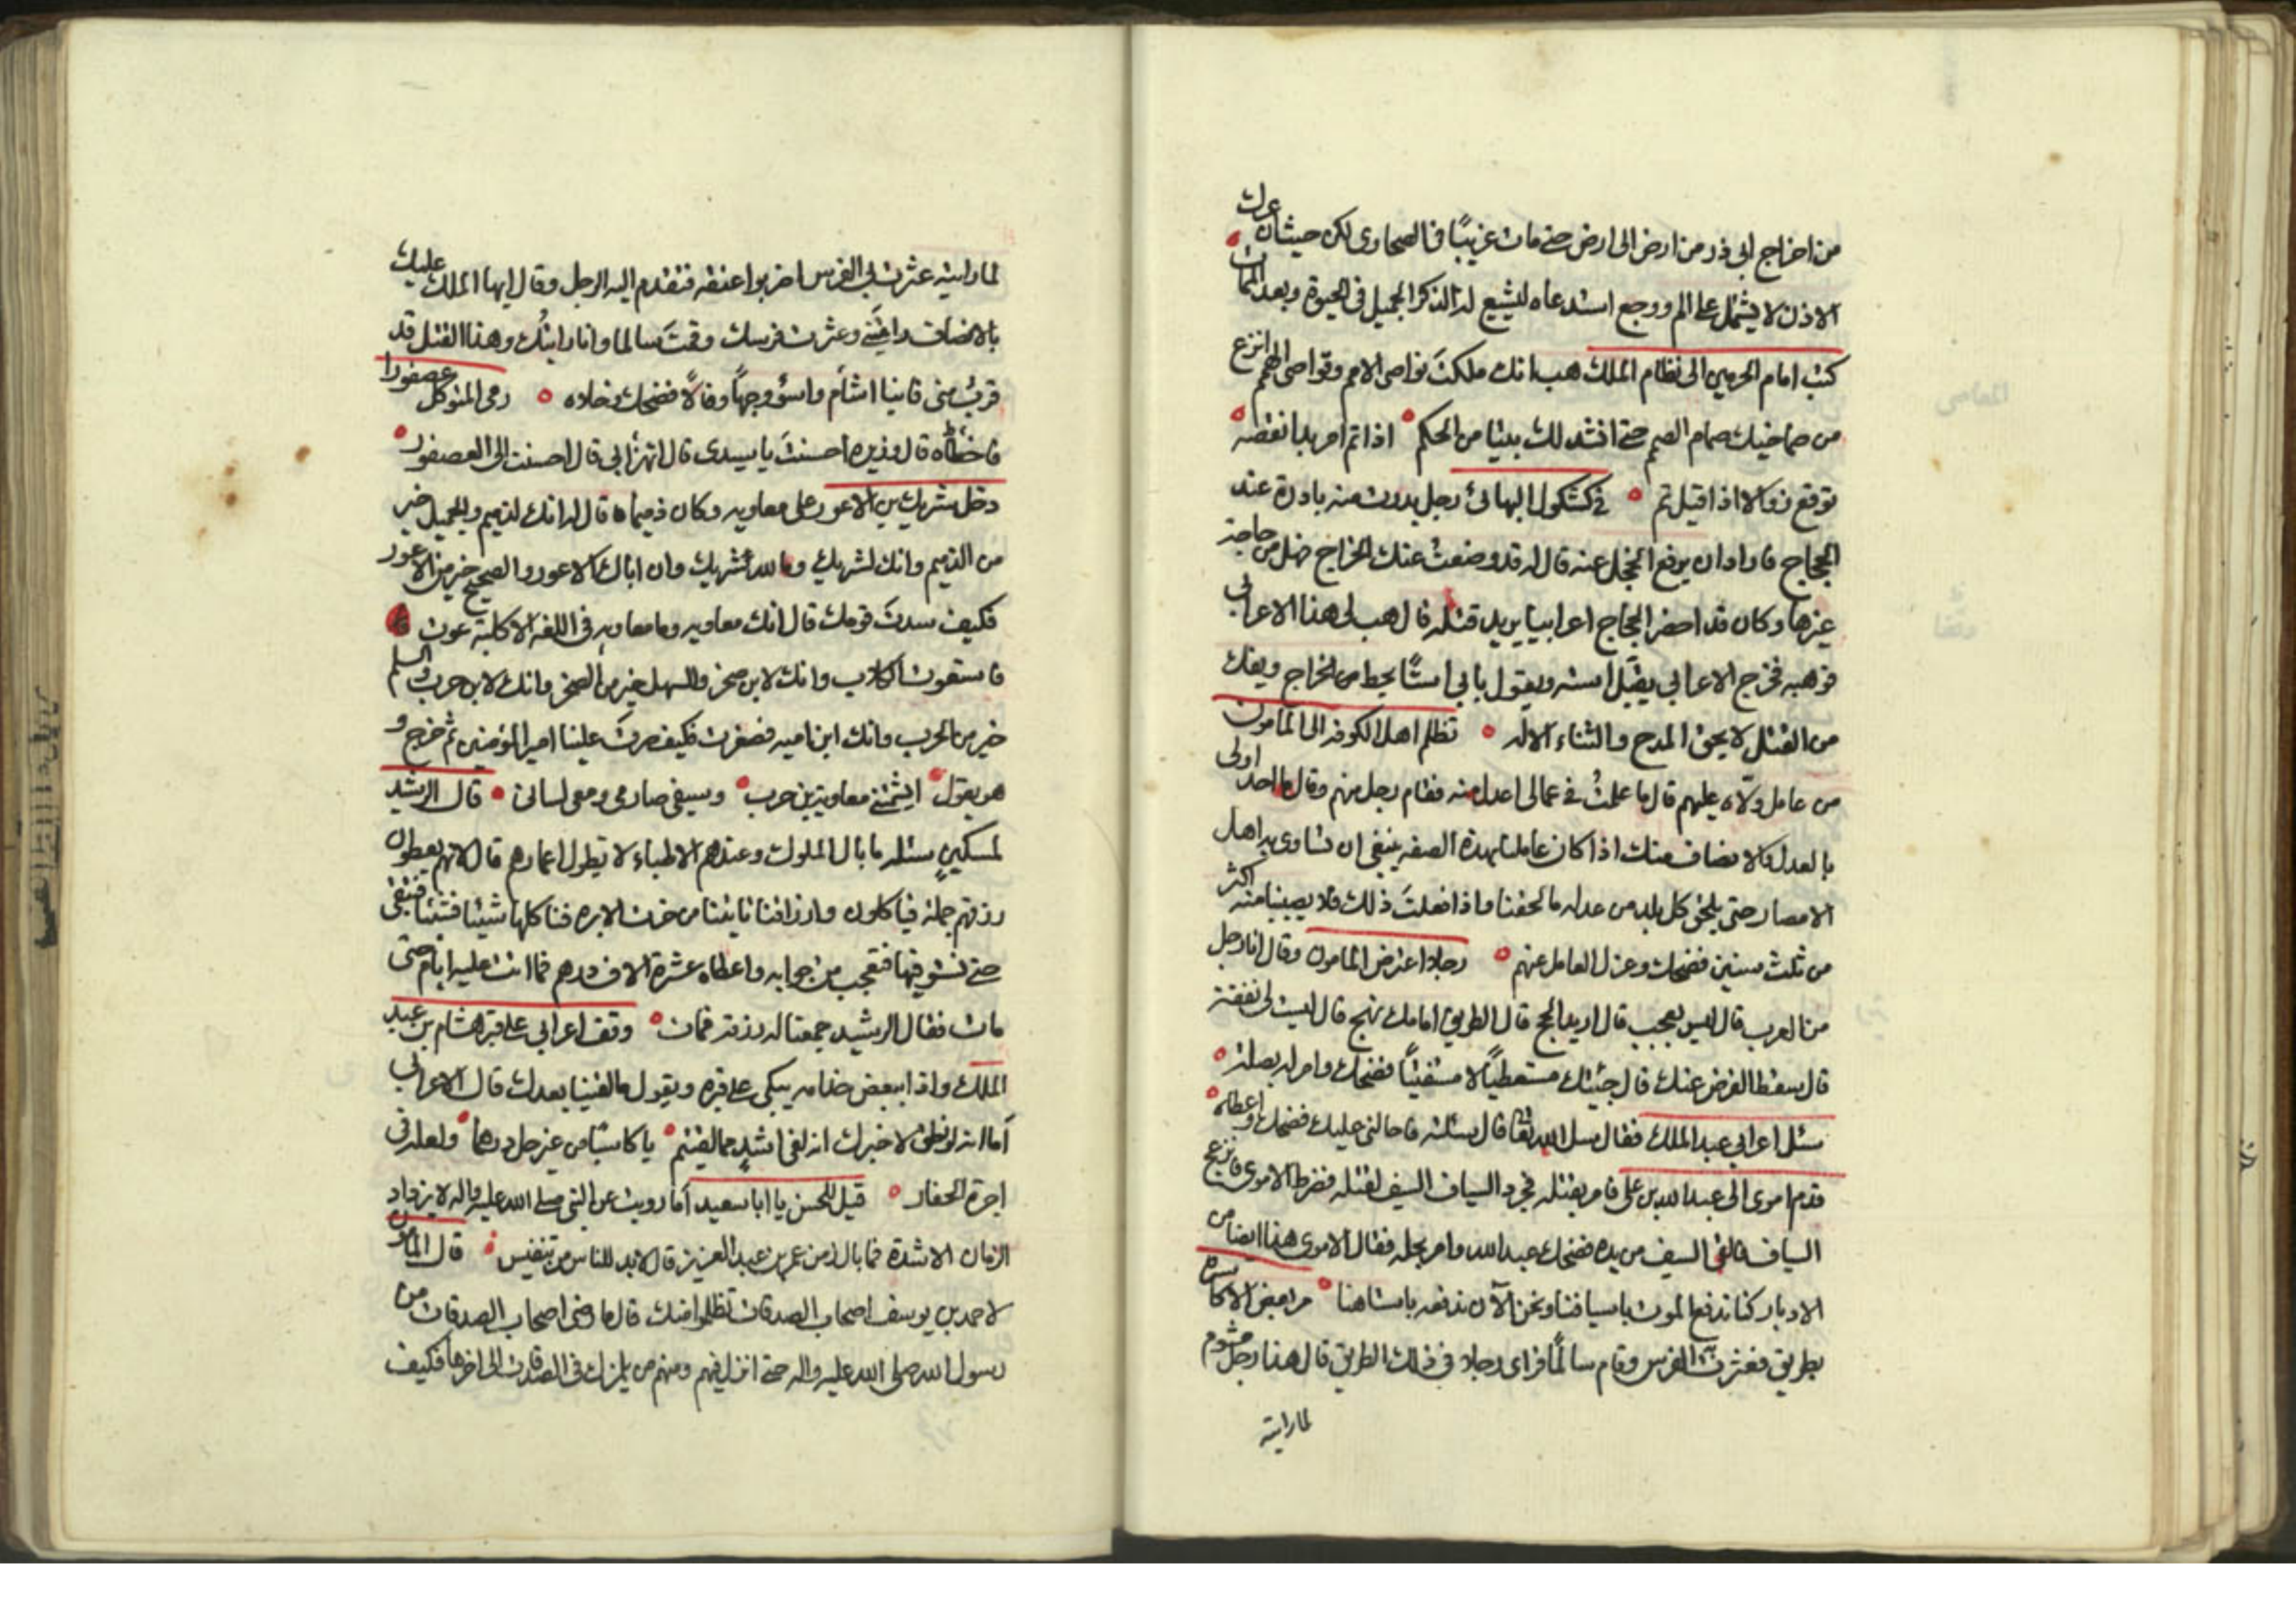 من اخراج ابى ذر من ارض الى ارض حتى مات غريبًا فى الصحارى لكن حيث ان عرك
الاذن لا يشتمل على الم ووجع استدعاه ليشيع له الذكر الجميل فى الحيوة وبعد الممات
كتب امام الحرمين الى نظام الملك هب انك ملكت نواصى الامم وقواصى الهمم انزع
من صماخيك صمام الصمم حتى انشد لك بيتا من الحكم اذا تم امر بدا نقصه
توقع زوالا اذا قيل تم فى كشكول البهائى رجل بدرت منه بادرة عند
الحجاج فاراد ان يرفع الخجل عنه قال له قد وضعت عنك الخراج فهل من حاجة
غيرها وكان قد احضر الحجاج اعرابيا يريد قتله قال هب لى هذا الاعرابى
فوهبه فخرج الاعرابى يقبل استه ويقول بابى استًا يحط من الخراج ويفك
من القتل لا يحق المدح والثناء الا له تظلم اهل الكوفه الى المامون
من عامل ولاه عليهم قال ما علمت فى عمالى اعدل منه فقام رجل منهم وقال ما احد اولى
بالعدل والانصاف منك اذا كان عاملنا بهذه الصفه ينبغى ان تساوى به اهل
الامصار حتى يلحق كل بلد من عدله ما لحقنا واذا فعلت ذلك فلا يصيبنا منه اكثر
من ثلث سنين فضحك وعزل العامل عنهم رجلا اعترض المامون وقال انا رجل
من العرب قال ليس بعجب قال اريد الحج قال الطريق امامك نهج قال ليست لى نفقة
قال سقط الفرض عنك قال جئتك مستعطيًا لا مستفتيًا فضحك وامر له بصلة
سئل اعرابى عبد الملك فقال سل الله تعالى قال سئلته فاحالنى عليك فضحك واعطاه
قدم اموى الى عبد الله بن على فامر بقتله فجرد السياف السيف لقتله فضرط الاموى فانزعج
السياف فالقى السيف من يده فضحك عبد الله وامر بحله فقال الاموى هذا ايضا من
الادبار كنا ندفع الموت باسيافنا ونحن الآن ندفعه باستاهنا مر بعض الاكاسرة
بطريق فعثرت به الفرس وقام سالمًا فراى رجلا فى ذلك الطريق قال هذا رجل مشوم
لما رايته
لما رايته عثرت بى الفرس اضربوا عنقه فتقدم اليه الرجل وقال ايها الملك عليك
بالانصاف رايتنى وعثرت فرسك وقمت سالما وانا رايتك وهذا القتل قد
قرب منى فاينا اشأم واسوء وجهًا وفالًا فضحك وخلاه رمى المتوكل عصفورا
فاخطاه قال وزيره احسنت يا سيدى قال اتهزأ بى قال احسنت الى العصفور
دخل شريك بن الاعور على معاويه وكان ذميما قال له انك لذميم والجميل خير
من الذميم وانك لشريك وما لله شريك وان اباك الاعور والصحيح خير من الاعور
فكيف سدت قومك قال انك معاويه وما معاويه فى اللغه الا كلبة عوت
فاستعوت الكلاب وانك لابن صخر والسهل خير من الصخر وانك لابن حرب والسلم
خير من الحرب وانك ابن اميه فصغرت فكيف صرت علينا امير المؤمنين ثم خرج و
هو يقول ايشتمنى معاوية بن حرب وسيفى صارم ومعى لسانى قال الرشيد
لمسكين سئله ما بال الملوك وعندهم الاطباء لا يطول اعمارهم قال لانهم يعطون
رزقهم جملة فياكلون وارزاقنا تايتنا من خرت الابره فناكلها شيئا فشيئا فنبقى
حتى نستوفيها فتعجب من جوابه واعطاه عشرة الاف درهم فما اتت عليه ايام حتى
مات فقال الرشيد جمعنا له رزقه فمات وقف اعرابى على قبر هشام بن عبد
الملك واذا ببعض خدامه يبكى على قبره ويقول ما لقينا بعدك قال الاعرابى
أما انه لو نطق لاخبرك انه لقى اشد مما لقيتم يا كاسبًا من غير حل درهما ولعله فى
اجرة الحفار قيل للحسن يا ابا سعيد أما رويت عن النبى صلى الله عليه واله لا يزداد
الزمان الا شدة فما بال زمن عمر بن عبد العزيز قال لابد للناس من تنفيس قال المامون
لاحمد بن يوسف اصحاب الصدقات تظلموا منك قال ما رضى اصحاب الصدقات من
رسول الله صلى الله عليه واله حتى انزل فيهم ومنهم من يلمزك فى الصدقات الى اخرها فكيف